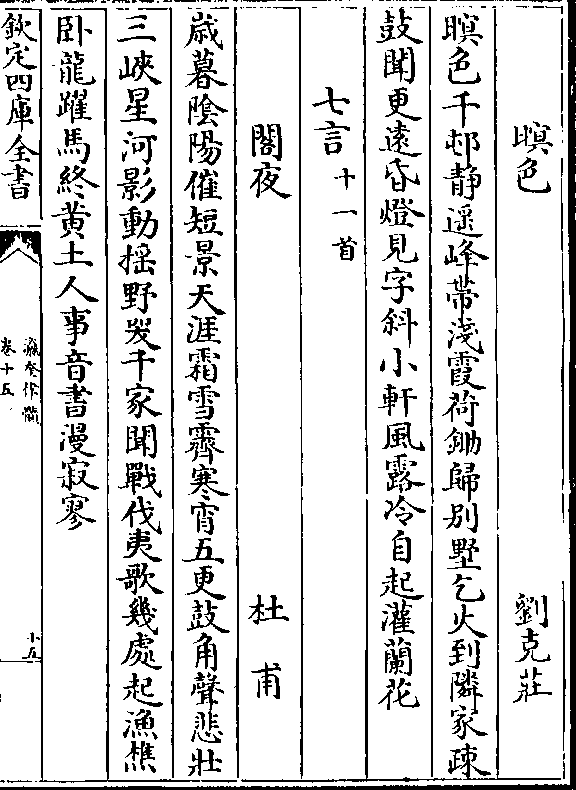 暝色　劉克莊
暝色千邨静遥峰帶淺霞荷鋤歸别墅乞火到隣家疎
鼓聞更遠昏燈見字斜小軒風露冷自起灌蘭花
七言十一首
閣夜　杜甫
歳暮陰陽催短景天涯霜雪霽寒宵五更鼓角聲悲壯
三峽星河影動揺野哭千家聞戰伐夷歌幾處起漁樵
卧龍躍馬終黄土人事音書漫寂寥
欽定四庫全書
瀛奎律髓
卷十五
十五